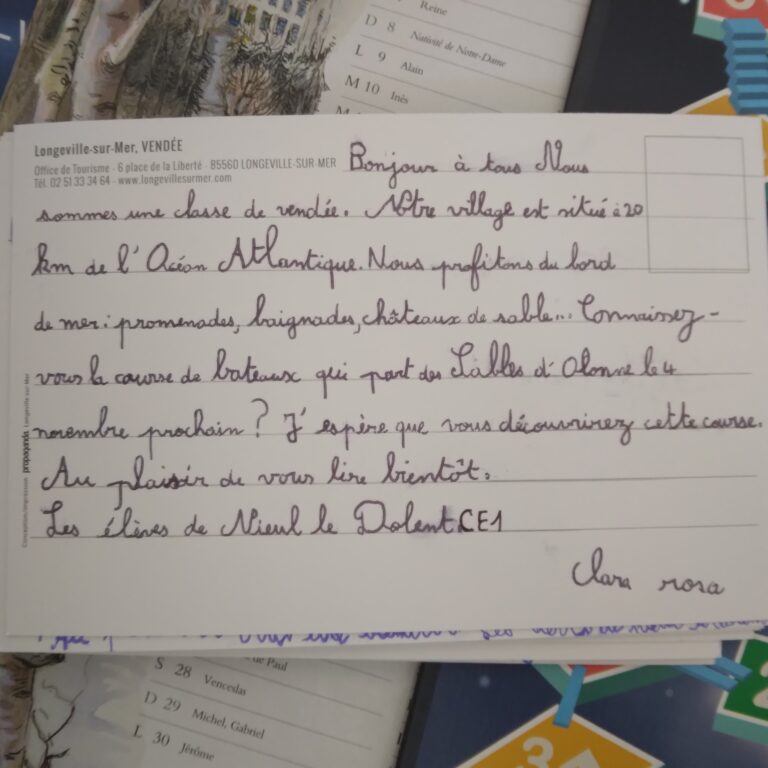 Reine
D 8 Nativité de Notre-Dame
L 9 Alain
M 10 Inès
Longeville-sur-Mer, VENDÉE
Office de Tourisme - 6 place de la Liberté - 85560 LONGEVILLE-SUR-MER
Tél. 02 51 33 34 64 - www.longevillesurmer.com
Bonjour à tous Nous
sommes une classe de vendée. Notre village est situé à 20
km de l'Océan Atlantique. Nous profitons du bord
de mer : promenades, baignades, châteaux de sable... Connaissez-
vous la course de bateaux qui part des Sables d'Olonne le 4
novembre prochain ? J'espère que vous découvrirez cette course.
Au plaisir de vous lire bientôt.
Les élèves de Nieul le Dolent CE1
Clara rosa
Conception/impression propaganda Longeville sur Mer
de Paul
S 28 Venceslas
D 29 Michel, Gabriel
L 30 Jérôme
3
2